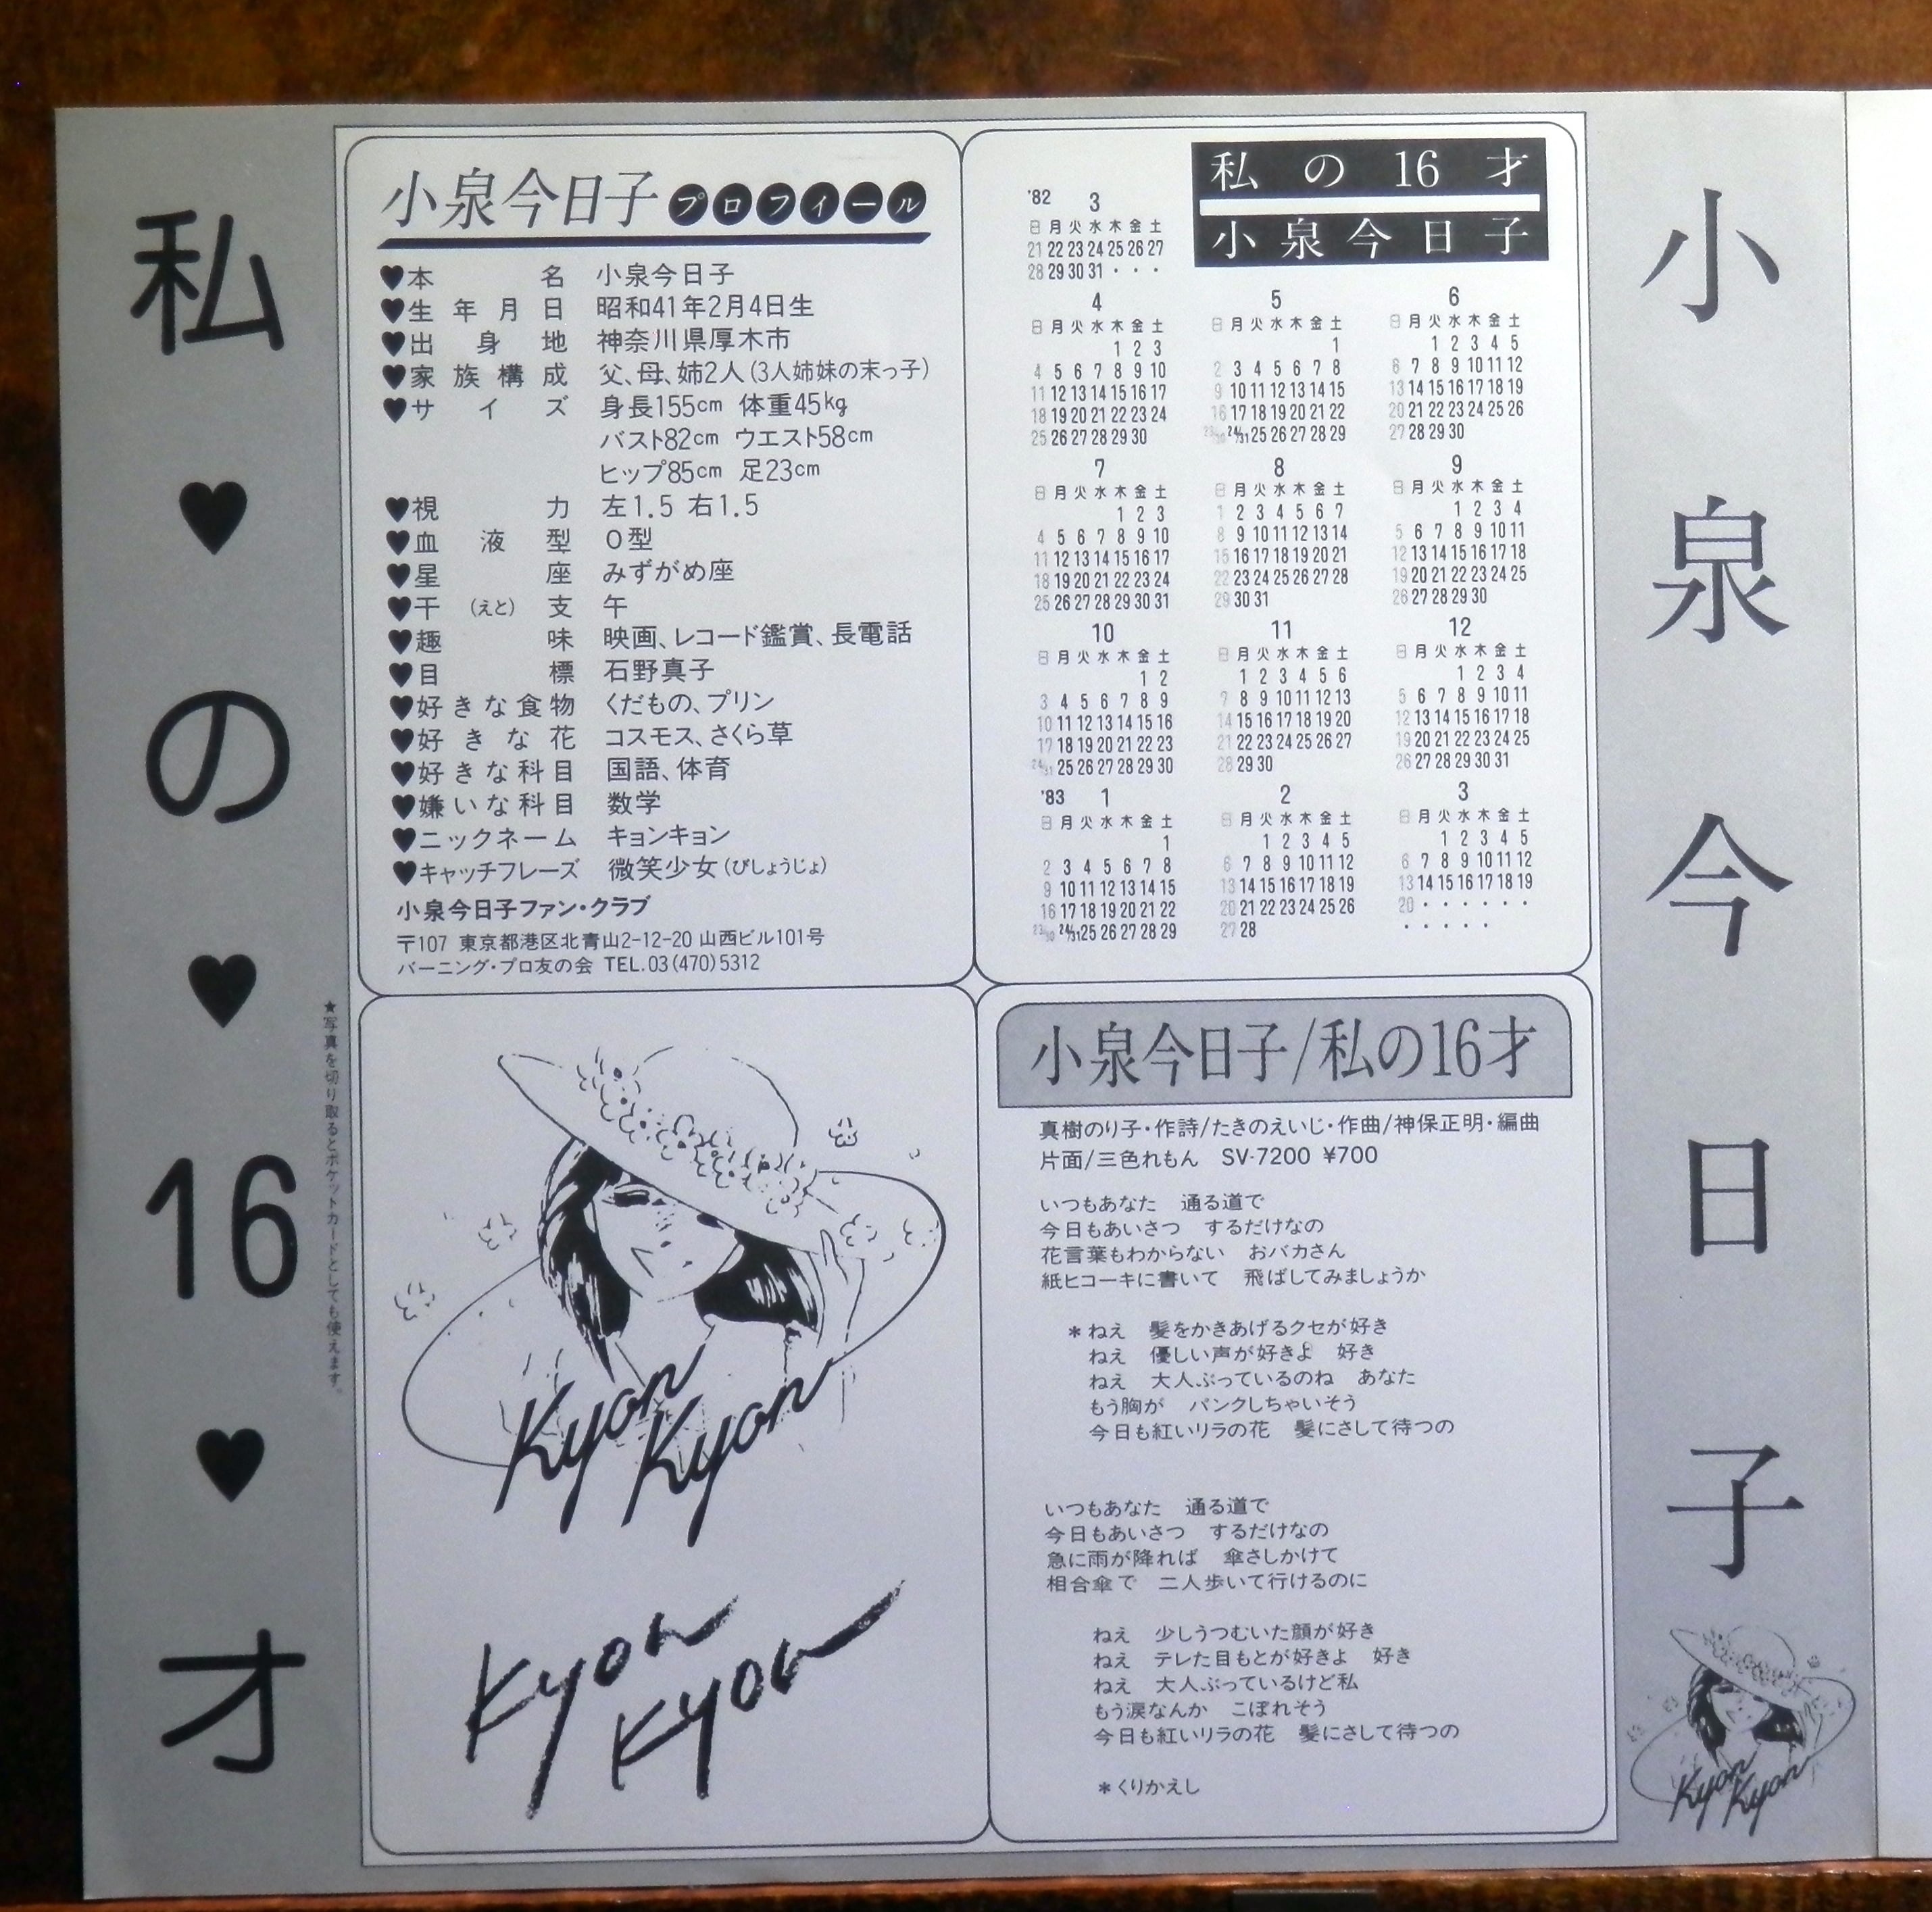 私♥の♥16♥才
小泉今日子プロフィール
♥本名 小泉今日子
♥生年月日 昭和41年2月4日生
♥出身地 神奈川県厚木市
♥家族構成 父、母、姉2人(3人姉妹の末っ子)
♥サイズ 身長155cm 体重45kg
バスト82cm ウエスト58cm
ヒップ85cm 足23cm
♥視力 左1.5 右1.5
♥血液型 O型
♥星座 みずがめ座
♥干(えと)支 午
♥趣味 映画、レコード鑑賞、長電話
♥目標 石野真子
♥好きな食物 くだもの、プリン
♥好きな花 コスモス、さくら草
♥好きな科目 国語、体育
♥嫌いな科目 数学
♥ニックネーム キョンキョン
♥キャッチフレーズ 微笑少女(びしょうじょ)
小泉今日子ファン・クラブ
〒107 東京都港区北青山2-12-20 山西ビル101号
バーニング・プロ友の会 TEL.03(470)5312
私の16才
小泉今日子
'82 3
日月火水木金土
21 22 23 24 25 26 27
28 29 30 31 ・ ・ ・
4
日月火水木金土
1 2 3
4 5 6 7 8 9 10
11 12 13 14 15 16 17
18 19 20 21 22 23 24
25 26 27 28 29 30
5
日月火水木金土
1
2 3 4 5 6 7 8
9 10 11 12 13 14 15
16 17 18 19 20 21 22
23/30 24/31 25 26 27 28 29
6
日月火水木金土
1 2 3 4 5
6 7 8 9 10 11 12
13 14 15 16 17 18 19
20 21 22 23 24 25 26
27 28 29 30
7
日月火水木金土
1 2 3
4 5 6 7 8 9 10
11 12 13 14 15 16 17
18 19 20 21 22 23 24
25 26 27 28 29 30 31
8
日月火水木金土
1 2 3 4 5 6 7
8 9 10 11 12 13 14
15 16 17 18 19 20 21
22 23 24 25 26 27 28
29 30 31
9
日月火水木金土
1 2 3 4
5 6 7 8 9 10 11
12 13 14 15 16 17 18
19 20 21 22 23 24 25
26 27 28 29 30
10
日月火水木金土
1 2
3 4 5 6 7 8 9
10 11 12 13 14 15 16
17 18 19 20 21 22 23
24/31 25 26 27 28 29 30
11
日月火水木金土
1 2 3 4 5 6
7 8 9 10 11 12 13
14 15 16 17 18 19 20
21 22 23 24 25 26 27
28 29 30
12
日月火水木金土
1 2 3 4
5 6 7 8 9 10 11
12 13 14 15 16 17 18
19 20 21 22 23 24 25
26 27 28 29 30 31
'83 1
日月火水木金土
1
2 3 4 5 6 7 8
9 10 11 12 13 14 15
16 17 18 19 20 21 22
23/30 24/31 25 26 27 28 29
2
日月火水木金土
1 2 3 4 5
6 7 8 9 10 11 12
13 14 15 16 17 18 19
20 21 22 23 24 25 26
27 28
3
日月火水木金土
1 2 3 4 5
6 7 8 9 10 11 12
13 14 15 16 17 18 19
20 ・ ・ ・ ・ ・ ・
・ ・ ・ ・ ・
★写真を切り取るとポケットカードとしても使えます。
Kyon
Kyon
Kyon
Kyon
小泉今日子/私の16才
真樹のり子・作詩/たきのえいじ・作曲/神保正明・編曲
片面/三色れもん SV-7200 ¥700
いつもあなた 通る道で
今日もあいさつ するだけなの
花言葉もわからない おバカさん
紙ヒコーキに書いて 飛ばしてみましょうか
＊ねえ 髪をかきあげるクセが好き
ねえ 優しい声が好きよ 好き
ねえ 大人ぶっているのね あなた
もう胸が パンクしちゃいそう
今日も紅いリラの花 髪にさして待つの
いつもあなた 通る道で
今日もあいさつ するだけなの
急に雨が降れば 傘さしかけて
相合傘で 二人歩いて行けるのに
ねえ 少しうつむいた顔が好き
ねえ テレた目もとが好きよ 好き
ねえ 大人ぶっているけど私
もう涙なんか こぼれそう
今日も紅いリラの花 髪にさして待つの
＊くりかえし
小泉今日子
Kyon
Kyon